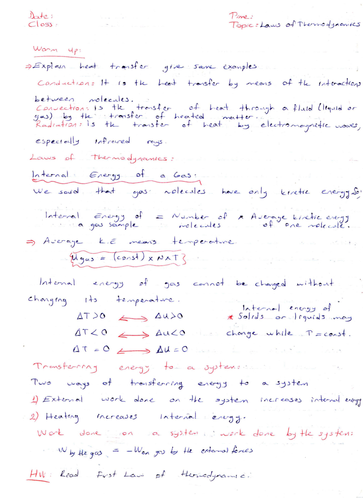 Date: Time:
Class: Topic: Laws of Thermodynamics
Warm up:
⇒ Explain heat transfer give some examples
Conduction: It is the heat transfer by means of the interactions
between molecules.
Convection: is the transfer of heat through a fluid (liquid or
gas) by the transfer of heated matter.
Radiation: is the transfer of heat by electromagnetic waves,
especially infrared rays.
Laws of Thermodynamics:
Internal Energy of a Gas:
We said that gas molecules have only kinetic energy so;
Internal Energy of a gas sample = Number of molecules × Average kinetic energy of one molecule.
⇒ Average K.E means temperature
Ugas = (const) × N × T
Internal energy of gas cannot be changed without
changing its temperature.
ΔT>0 ⟷ ΔU>0
ΔT<0 ⟷ ΔU<0
ΔT=0 ⟷ ΔU=0
Internal energy of
* Solids or liquids may
change while T=const.
Transferring energy to a system:
Two ways of transferring energy to a system
1) External work done on the system increases internal energy
2) Heating increases internal energy.
Work done on a system, work done by the system:
W by the gas = -W on gas by the external forces
HW: Read First Law of thermodynamic.